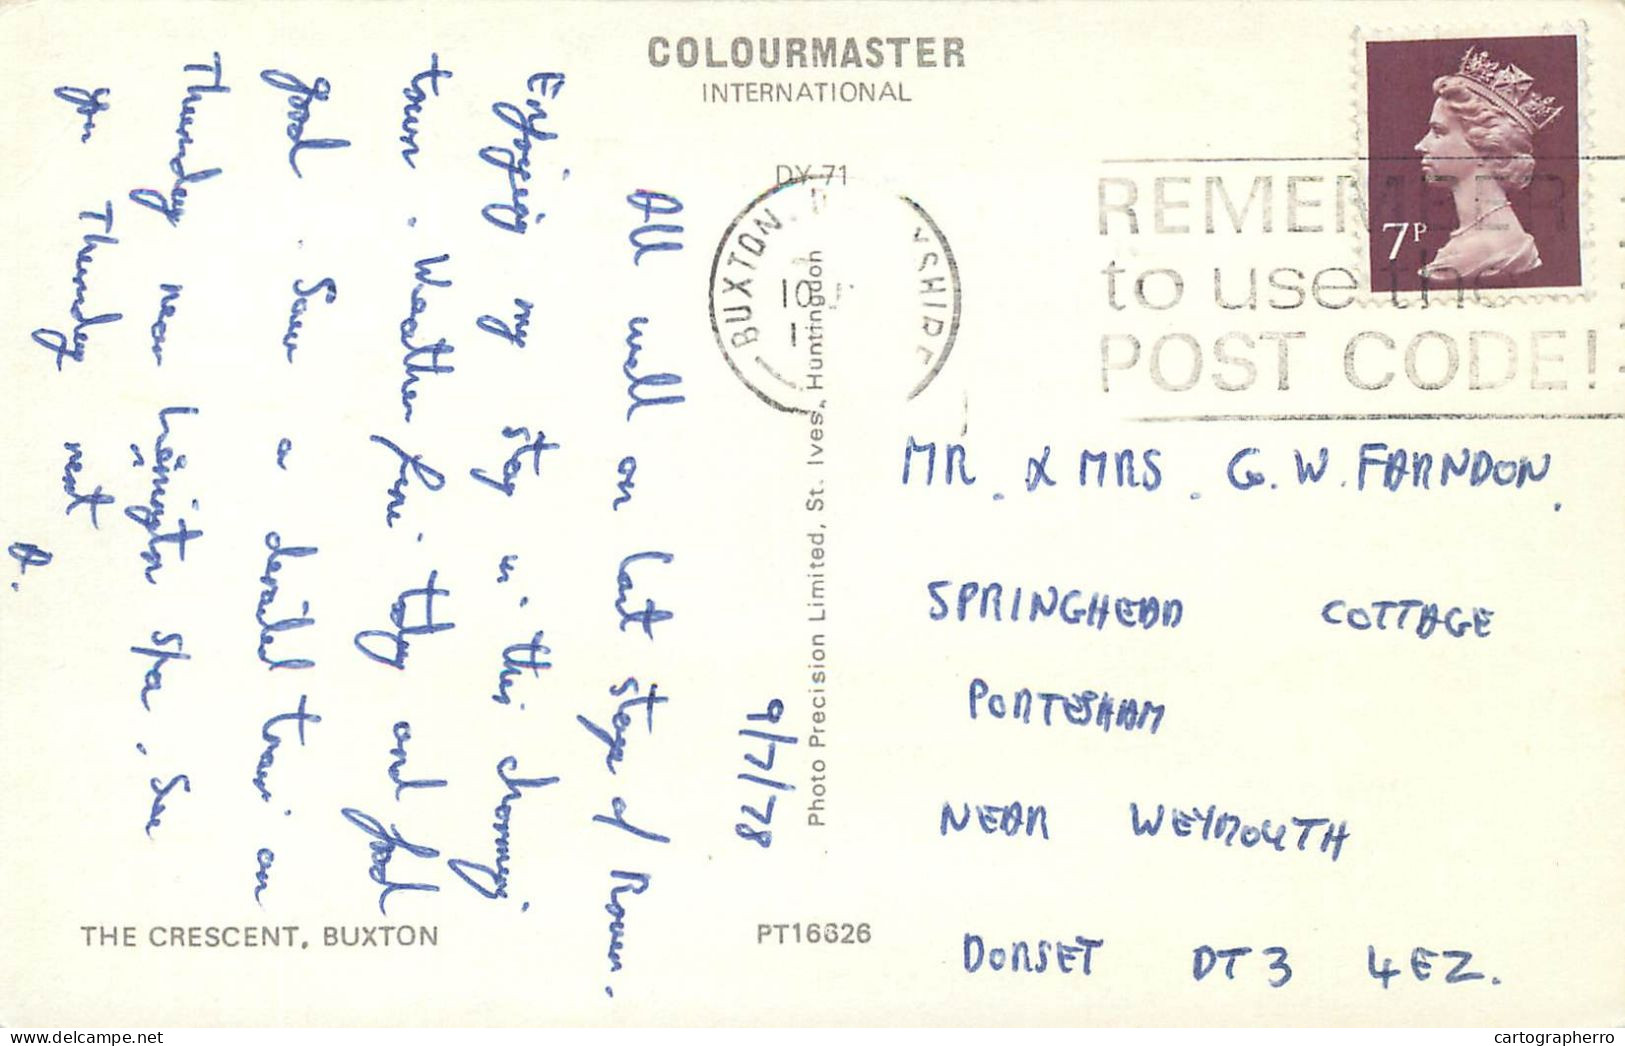 COLOURMASTER
INTERNATIONAL
DY 71
BUXTON
10
REMEMBER
to use the
POST CODE!
7P
9/7/78
All well on last stage of Rover.
Enjoying my stay in this charming
town. Weather fine today and food
good. Saw a derailed train on
Thursday near Leamington Spa. See
you Thursday next
A.
Photo Precision Limited, St. Ives, Huntingdon
MR. & MRS. G. W. FARNDON.
SPRINGHEAD COTTAGE
PORTESHAM
NEAR WEYMOUTH
DORSET DT3 4EZ.
THE CRESCENT, BUXTON
PT16626
cartographerro